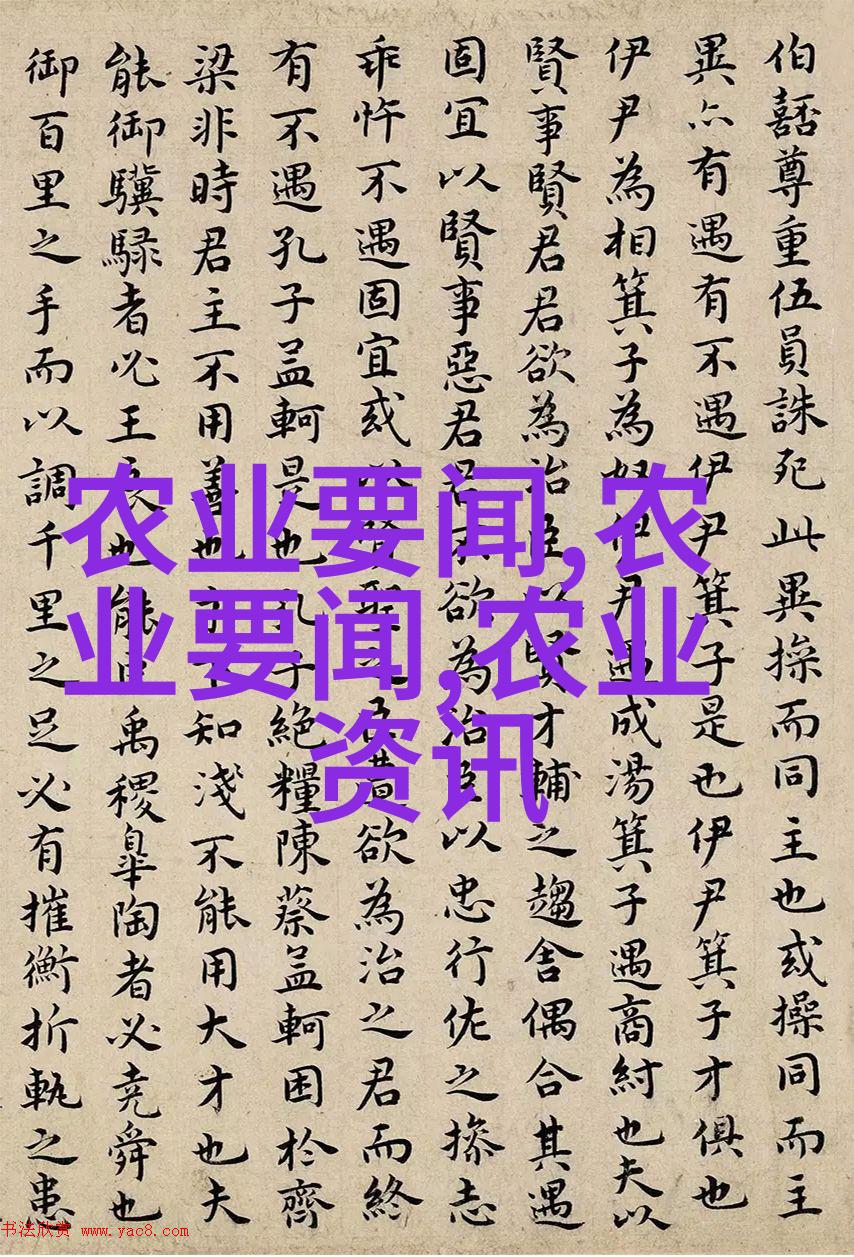 伯嚭尊重伍員誅死此異操而同主也或操同而主
異亦有遇有不遇伊尹箕子是也伊尹箕子才俱也
伊尹為相箕子為奴伊尹遇成湯箕子遇商紂也夫以
賢事賢君君欲為治臣以賢才輔之趨舍偶合其遇
固宜以賢事惡君君不欲為治臣以忠行佐之操志
乖忤不遇固宜或以賢聖之臣遭欲為治之君而終
有不遇孔子孟軻是也孔子絕糧陳蔡孟軻困於齊
梁非時君主不用善也才下知淺不能用大才也夫
能御驥騄者必王良也能臣禹稷皐陶者必堯舜也
御百里之手而以調千里之足必有摧衡折軛之患
农业要闻,农
业要闻,农业
资讯
书法欣赏 www.yac8.com